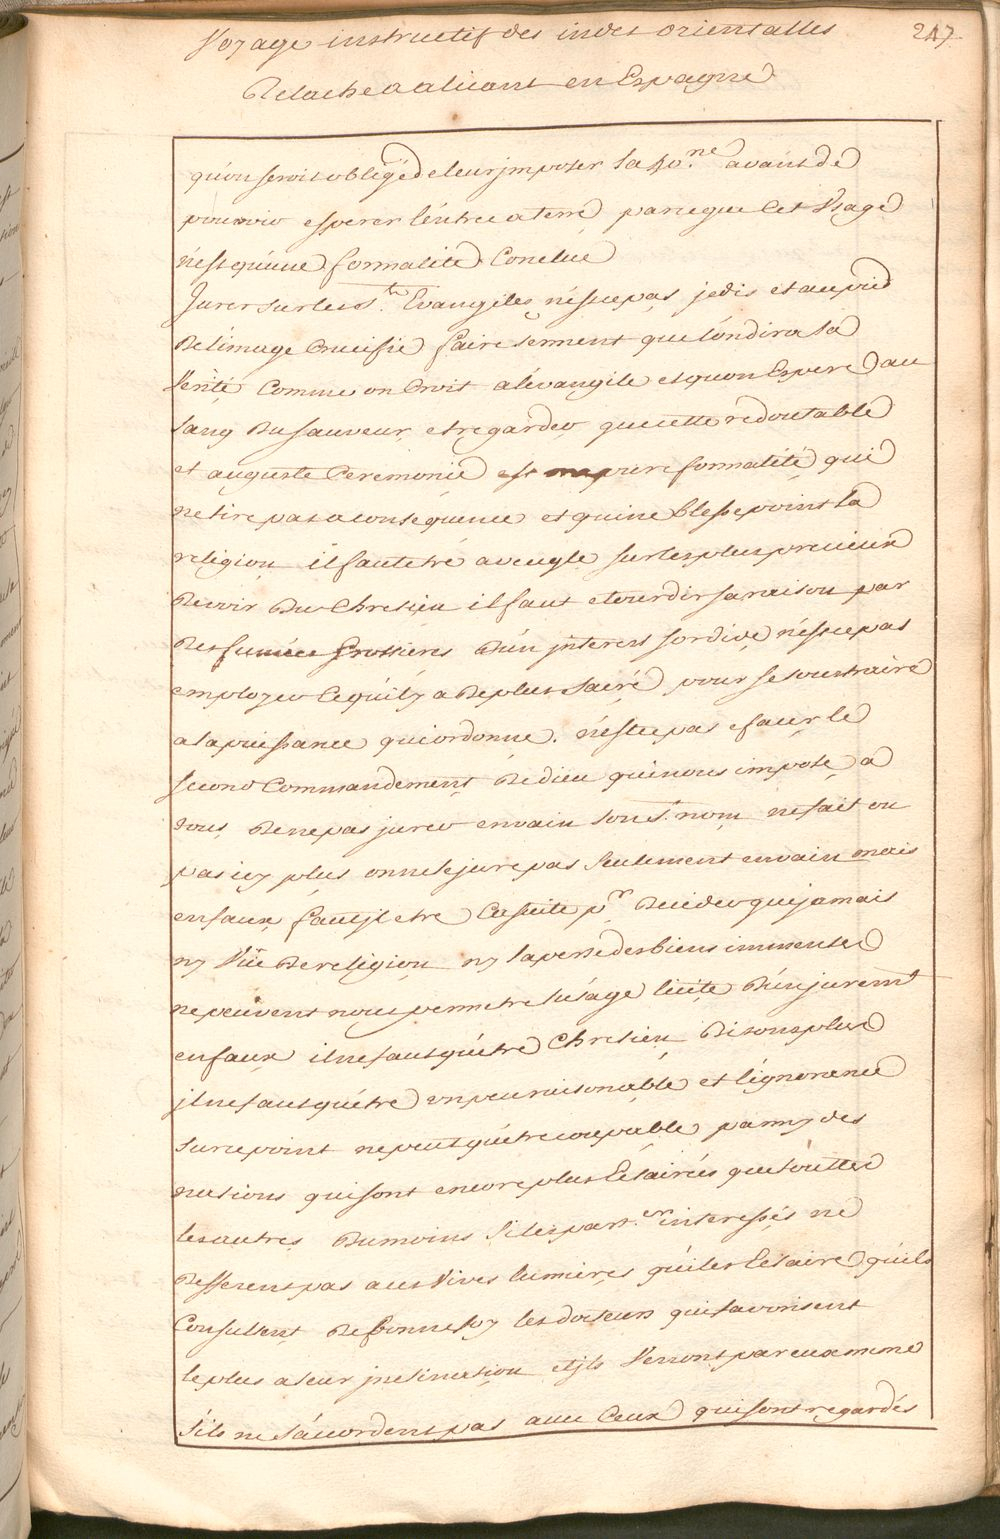 Voyage instructif des indes orientalles 247
Relache a alicant en Espagne
qu'on seroit obligé de leur jmposer la 40.ne avant de
pouvoir esperer l'entrée a terre parceque Cet Usage
n'est qu'une formalité Conclue
Jurer sur les sts. Evangiles n'est ce pas jedis et au pied
De l'image Crucifié faire serment que l'on dira la
Verité Comme on Croit a l'evangile et qu'on Espere au
sang Du sauveur, et regarder que cette redoutable
et auguste Ceremonie est pure formalité qui
ne tire pas a consequence et qui ne blesse point la
religion il faut etre aveugle sur les plus precieux
Devoir Du Chretien il faut etourdir sa raison par
Des fumées Grossieres D'un jnterest sordide n'est ce pas
employer Ce qu'il y a De plus sacré pour se soustraire
a la puissance qui ordonne. n'est ce pas efacer le
second Commandement De dieu qui nous impose a
tous De ne pas jurer en vain son st. nom ne fait on
pas icy plus on ne le jure pas seulement en vain mais
en faux, faut jl etre Casuite pr. Decider que jamais
ny Vüe De religion ny la perte des biens immenses
ne peuvent nous permetre l'usage licite D'un juremt
en faux il ne faut qu'être Chretien Disons plus
jl ne faut qu'étre un peu raisonable et l'ignorance
sur ce point ne peut qu'étre coupable parmy des
nations qui sont encore plus Eclairées que touttes
les autres Du moins si les part.ers interessés ne
Defferent pas aux Vives lumieres qui les Eclaire qu'ils
Consultent De bonne foy les docteurs qui favorisent
le plus a leur jnclination et jls Verront par eux mème
s'ils ne s'acordent pas avec Ceux qui sont regardés